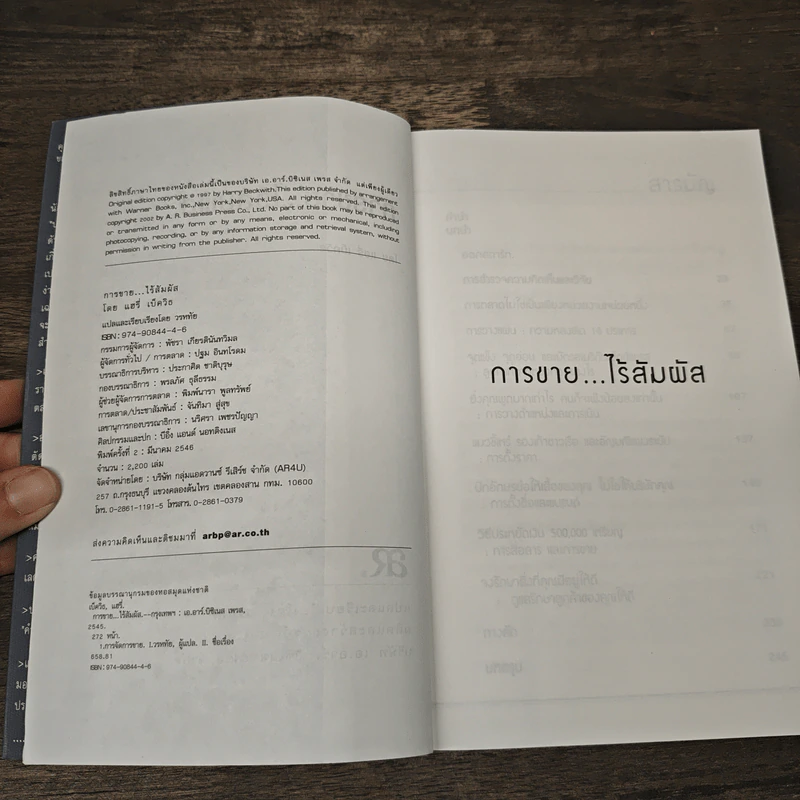 ลิขสิทธิ์ภาษาไทยของหนังสือเล่มนี้เป็นของบริษัท เอ.อาร์.บิซิเนส เพรส จำกัด แต่เพียงผู้เดียว
Original edition copyright © 1997 by Harry Beckwith.This edition published by arrangement
with Warner Books, Inc.,New York,New York,USA. All rights reserved. This edition
copyright 2002 by A. R. Business Press Co., Ltd. No part of this book may be reproduced
or transmitted in any form or by any means, electronic or mechanical, including
photocopying, recording, or by any information storage and retrieval system, without
permission in writing from the publisher. All rights reserved.
การขาย...ไร้สัมผัส
โดย แฮรี่ เบ็ควิธ
แปลและเรียบเรียงโดย วรหทัย
ISBN : 974-90844-4-6
กรรมการผู้จัดการ : พัชรา เกียรตินันทวิมล
ผู้จัดการทั่วไป / การตลาด : ปฐม อินทโรดม
บรรณาธิการบริหาร : ประภาศิต ชาติบุรุษ
กองบรรณาธิการ : พรลภัค ธุลีธรรม
ผู้ช่วยผู้จัดการการตลาด : พิมพ์นารา พูลทรัพย์
การตลาด/ประชาสัมพันธ์ : จันทิมา สู่สุข
เลขานุการกองบรรณาธิการ : นริศรา เพชรปัญญา
ศิลปกรรมและปก : บีอิ้ง แอนด์ นอทติงเนส
พิมพ์ครั้งที่ 2 : มีนาคม 2546
จำนวน : 2,200 เล่ม
จัดจำหน่ายโดย : บริษัท กลุ่มแอดวานซ์ รีเสิร์ช จำกัด (AR4U)
257 ถ.กรุงธนบุรี แขวงคลองต้นไทร เขตคลองสาน กทม. 10600
โทร. 0-2861-1191-5 โทรสาร. 0-2861-0379
ส่งความคิดเห็นและติชมมาที่ arbp@ar.co.th
ข้อมูลบรรณานุกรมของหอสมุดแห่งชาติ
เบ็ควิธ, แฮรี่.
การขาย...ไร้สัมผัส.--กรุงเทพฯ : เอ.อาร์.บิซิเนส เพรส,
2545.
272 หน้า.
1.การจัดการขาย. I.วรหทัย, ผู้แปล. II. ชื่อเรื่อง
658.81
ISBN : 974-90844-4-6
การขาย...ไร้สัมผัส